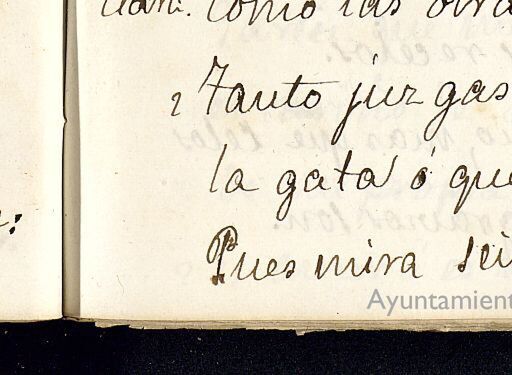 como las otra
¿Tanto juzgas
la gata ó que
Pues mira sei
Ayuntamient